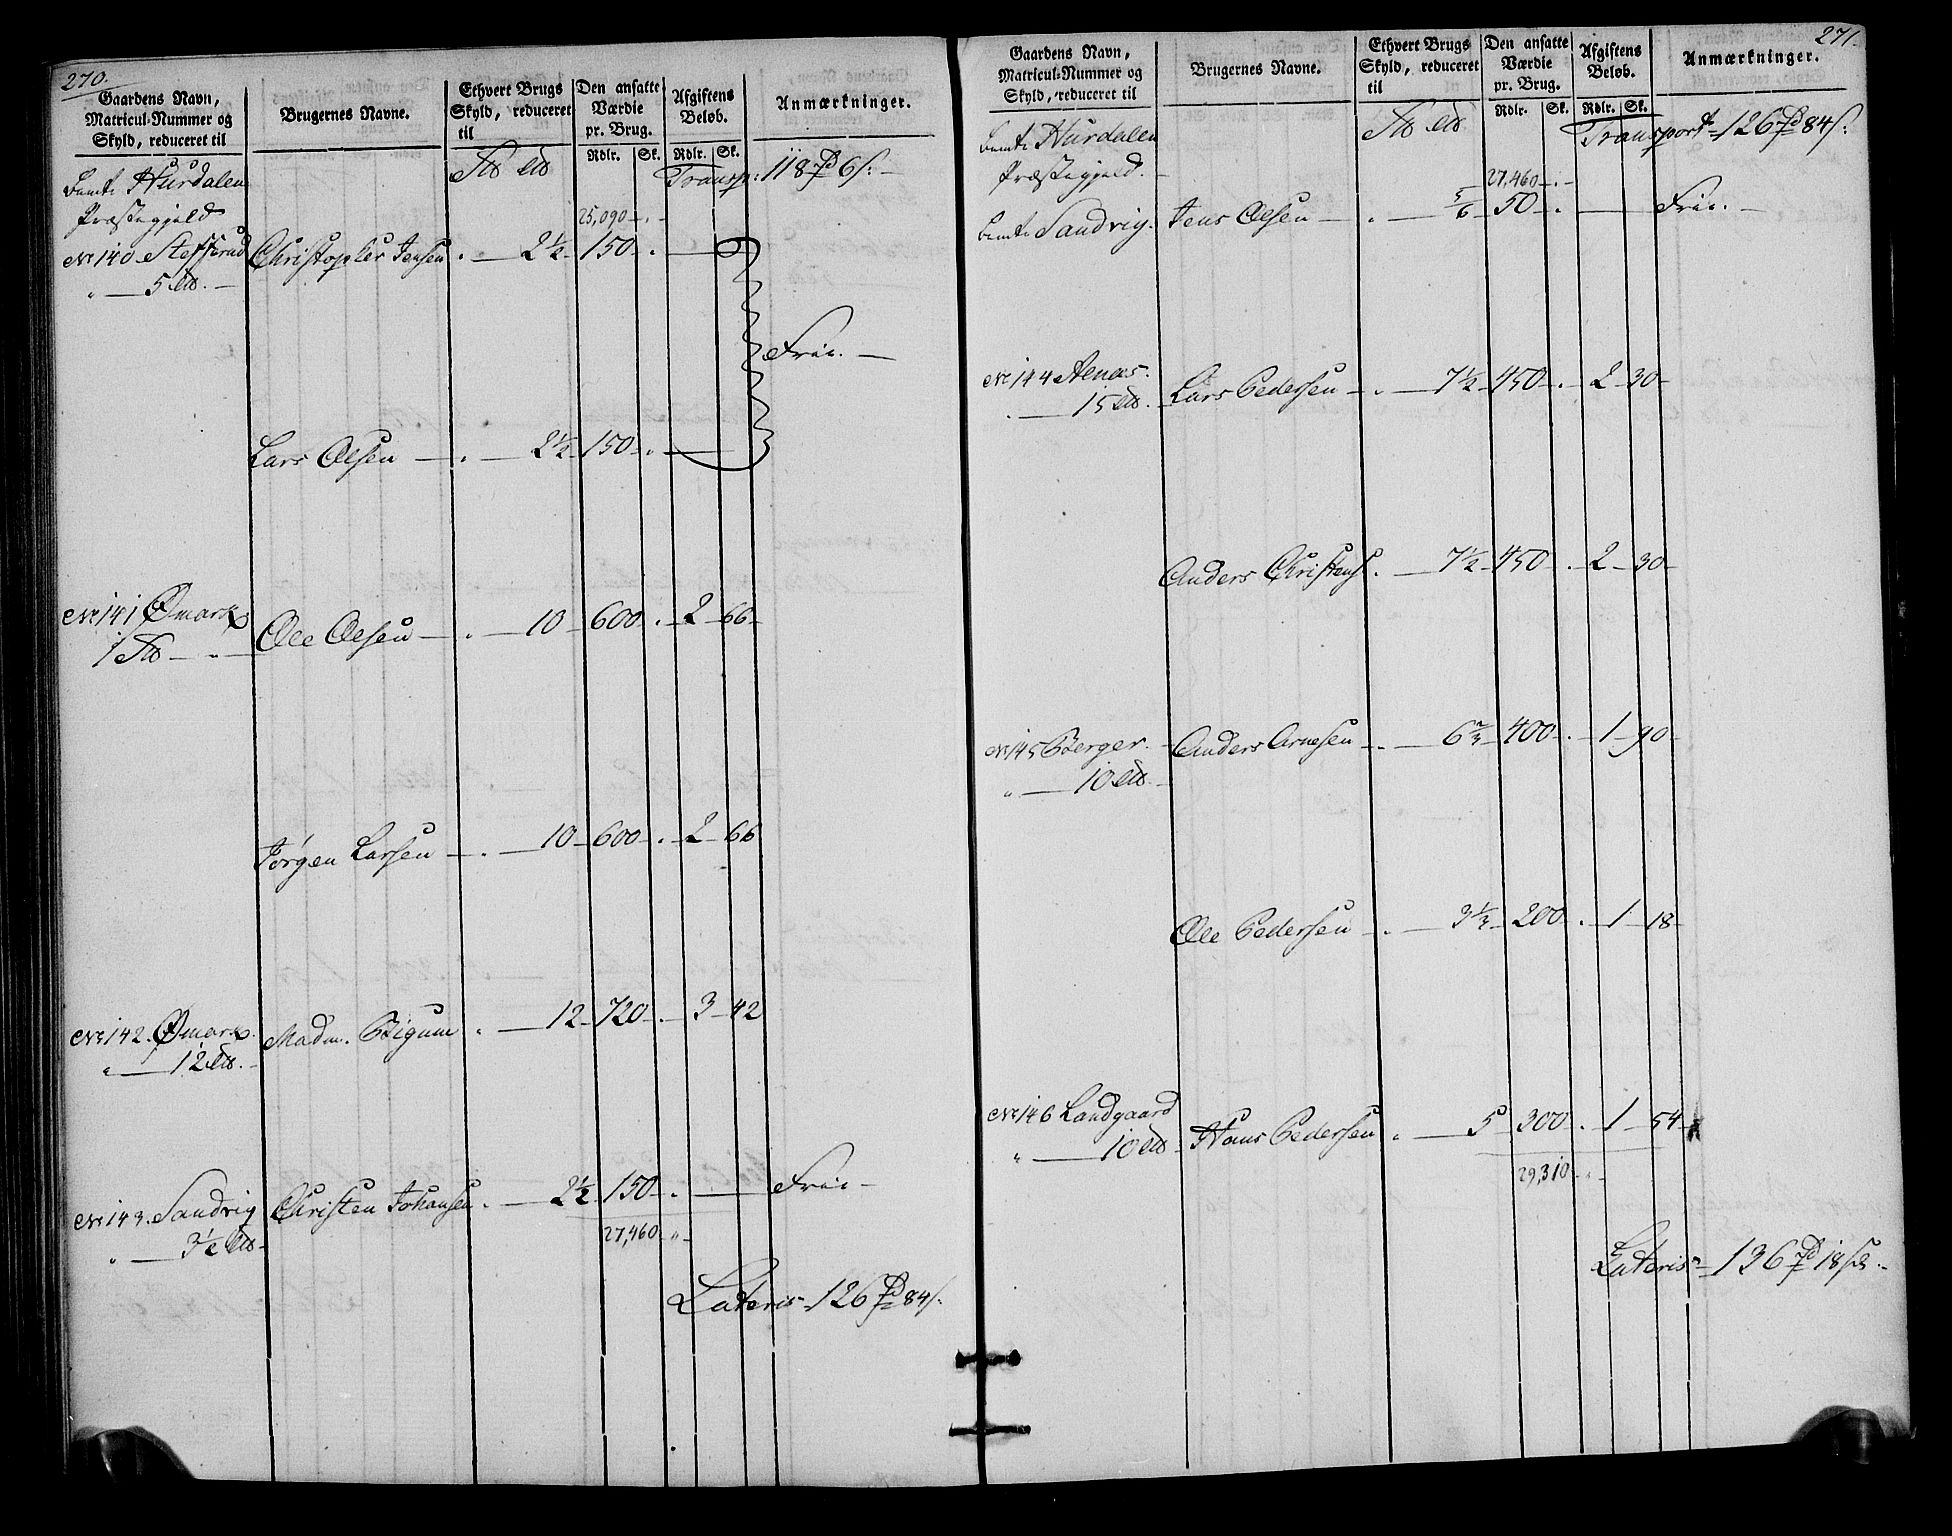 270.
Gaardens Navn, Matricul-Nummer og Skyld, reduceret til
Brugernes Navne.
Ethvert Brugs Skyld, reduceret til
Den ansatte Værdie pr. Brug.
Afgiftens Beløb.
Anmærkninger.
Rdlr. Sk. Rdlr. Sk.
bemte Hurdalen Transp: 118 6
Præstegjeld 25,090
No 140 Stefferud Christopher Jensen 2½ 150
5
Frie.
Lars Olsen 2½ 150
No 141 Ømark Ole Olsen 10 600 2 66
1
Jørgen Larsen 10 600 2 66
No 142. Ømark Madm. Bigum 12 720 3 42
12
No 143. Sandvig Christen Johansen 2½ 150 Frie
3½ 27,460
Lateris 126 84
271.
Gaardens Navn, Matricul-Nummer og Skyld, reduceret til
Brugernes Navne.
Ethvert Brugs Skyld, reduceret til
Den ansatte Værdie pr. Brug.
Afgiftens Beløb.
Anmærkninger.
Rdlr. Sk. Rdlr. Sk.
bemte Hurdalen Transport 126 84
Præstegjeld. 27,460
bemte Sandvig. Jens Olsen 5/6 50 Frie.
No 144
15 Lars Pedersen 7½ 450 2 30
Anders Christens. 7½ 450 2 30
No 145 Berger. Anders Arnesen 6⅔ 400 1 90
10
Ole Pedersen 3⅓ 200 1 18
No 146 Landgaard
10 Hans Pedersen 5 300 1 54
29,310
Lateris 136 18